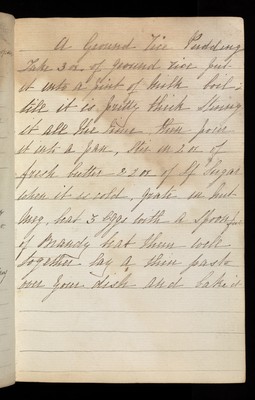 A Ground Rice Pudding
Take 3 oz of ground rice put
it into a pint of milk boil
till it is pretty thick stiring
it all the time then pour
it into a pan, stir in 2 oz of
fresh butter & 2 oz of Lf Sugar
when it is cold, grate in nut
meg, beat 3 Eggs with a spoonful
of Brandy beat them well
together lay a thin paste
over your dish and bake it